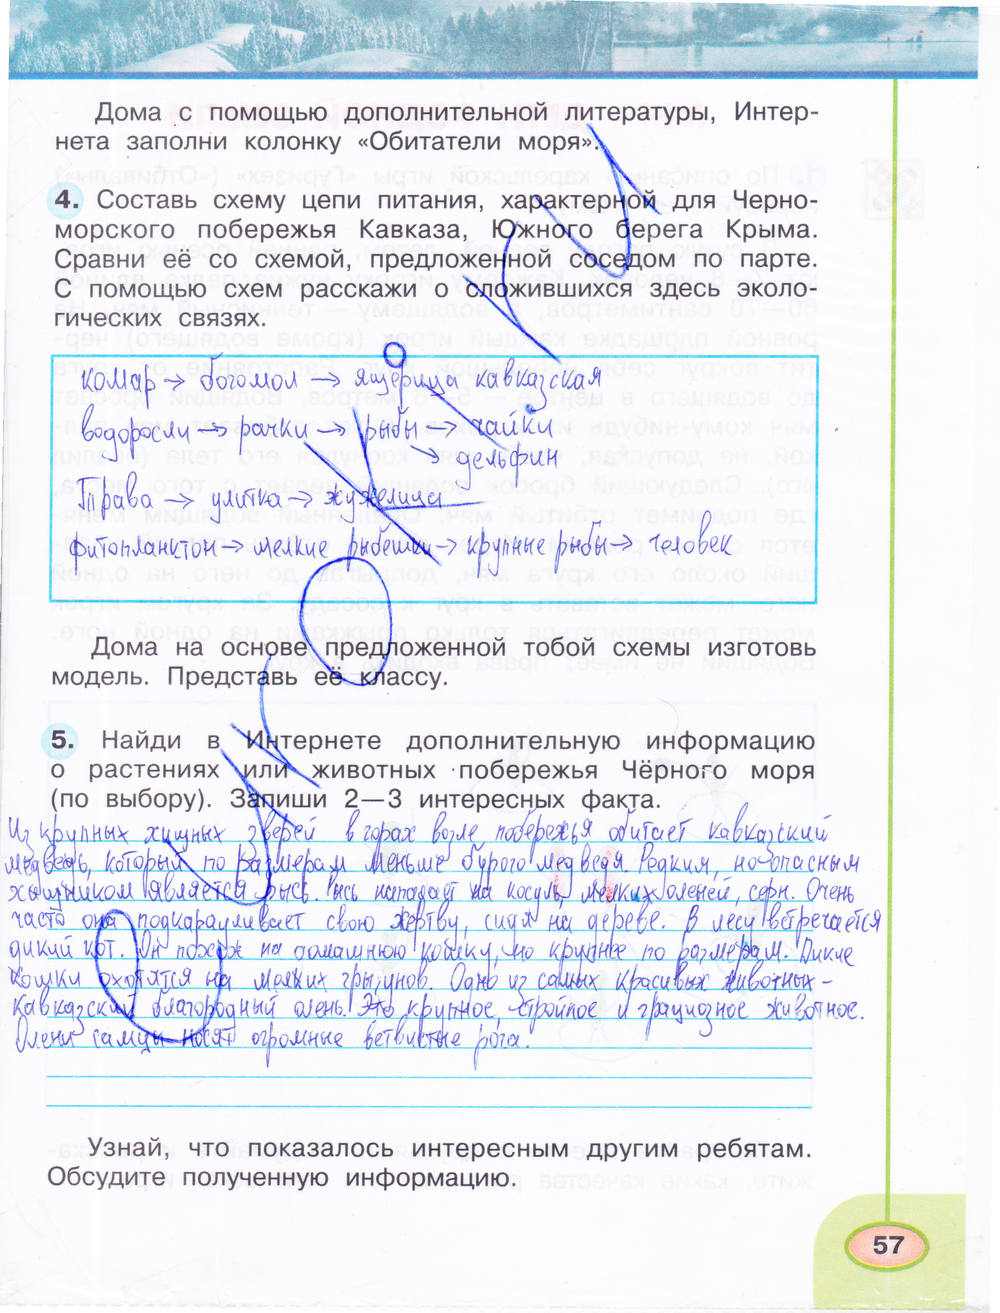 Дома с помощью дополнительной литературы, Интер-
нета заполни колонку «Обитатели моря».
4. Составь схему цепи питания, характерной для Черно-
морского побережья Кавказа, Южного берега Крыма.
Сравни её со схемой, предложенной соседом по парте.
С помощью схем расскажи о сложившихся здесь эколо-
гических связях.
комар → богомол → ящерица кавказская
водоросли → рачки → рыбы → чайки
→ дельфин
Трава → улитка → жужелица
фитопланктон → мелкие рыбешки → крупные рыбы → человек
Дома на основе предложенной тобой схемы изготовь
модель. Представь её классу.
5. Найди в Интернете дополнительную информацию
о растениях или животных побережья Чёрного моря
(по выбору). Запиши 2—3 интересных факта.
Из крупных хищных зверей в горах возле побережья обитает кавказский
медведь, который по размерам меньше бурого медведя. Редким, но опасным
хищником является рысь. Рысь нападает на косуль, мелких оленей, серн. Очень
часто она подкарауливает свою жертву, сидя на дереве. В лесу встречается
дикий кот. Он похож на домашнюю кошку, но крупнее по размерам. Дикие
кошки охотятся на мелких грызунов. Одно из самых красивых животных –
кавказский благородный олень. Это крупное, стройное и грациозное животное.
Олени самцы носят огромные ветвистые рога.
Узнай, что показалось интересным другим ребятам.
Обсудите полученную информацию.
57